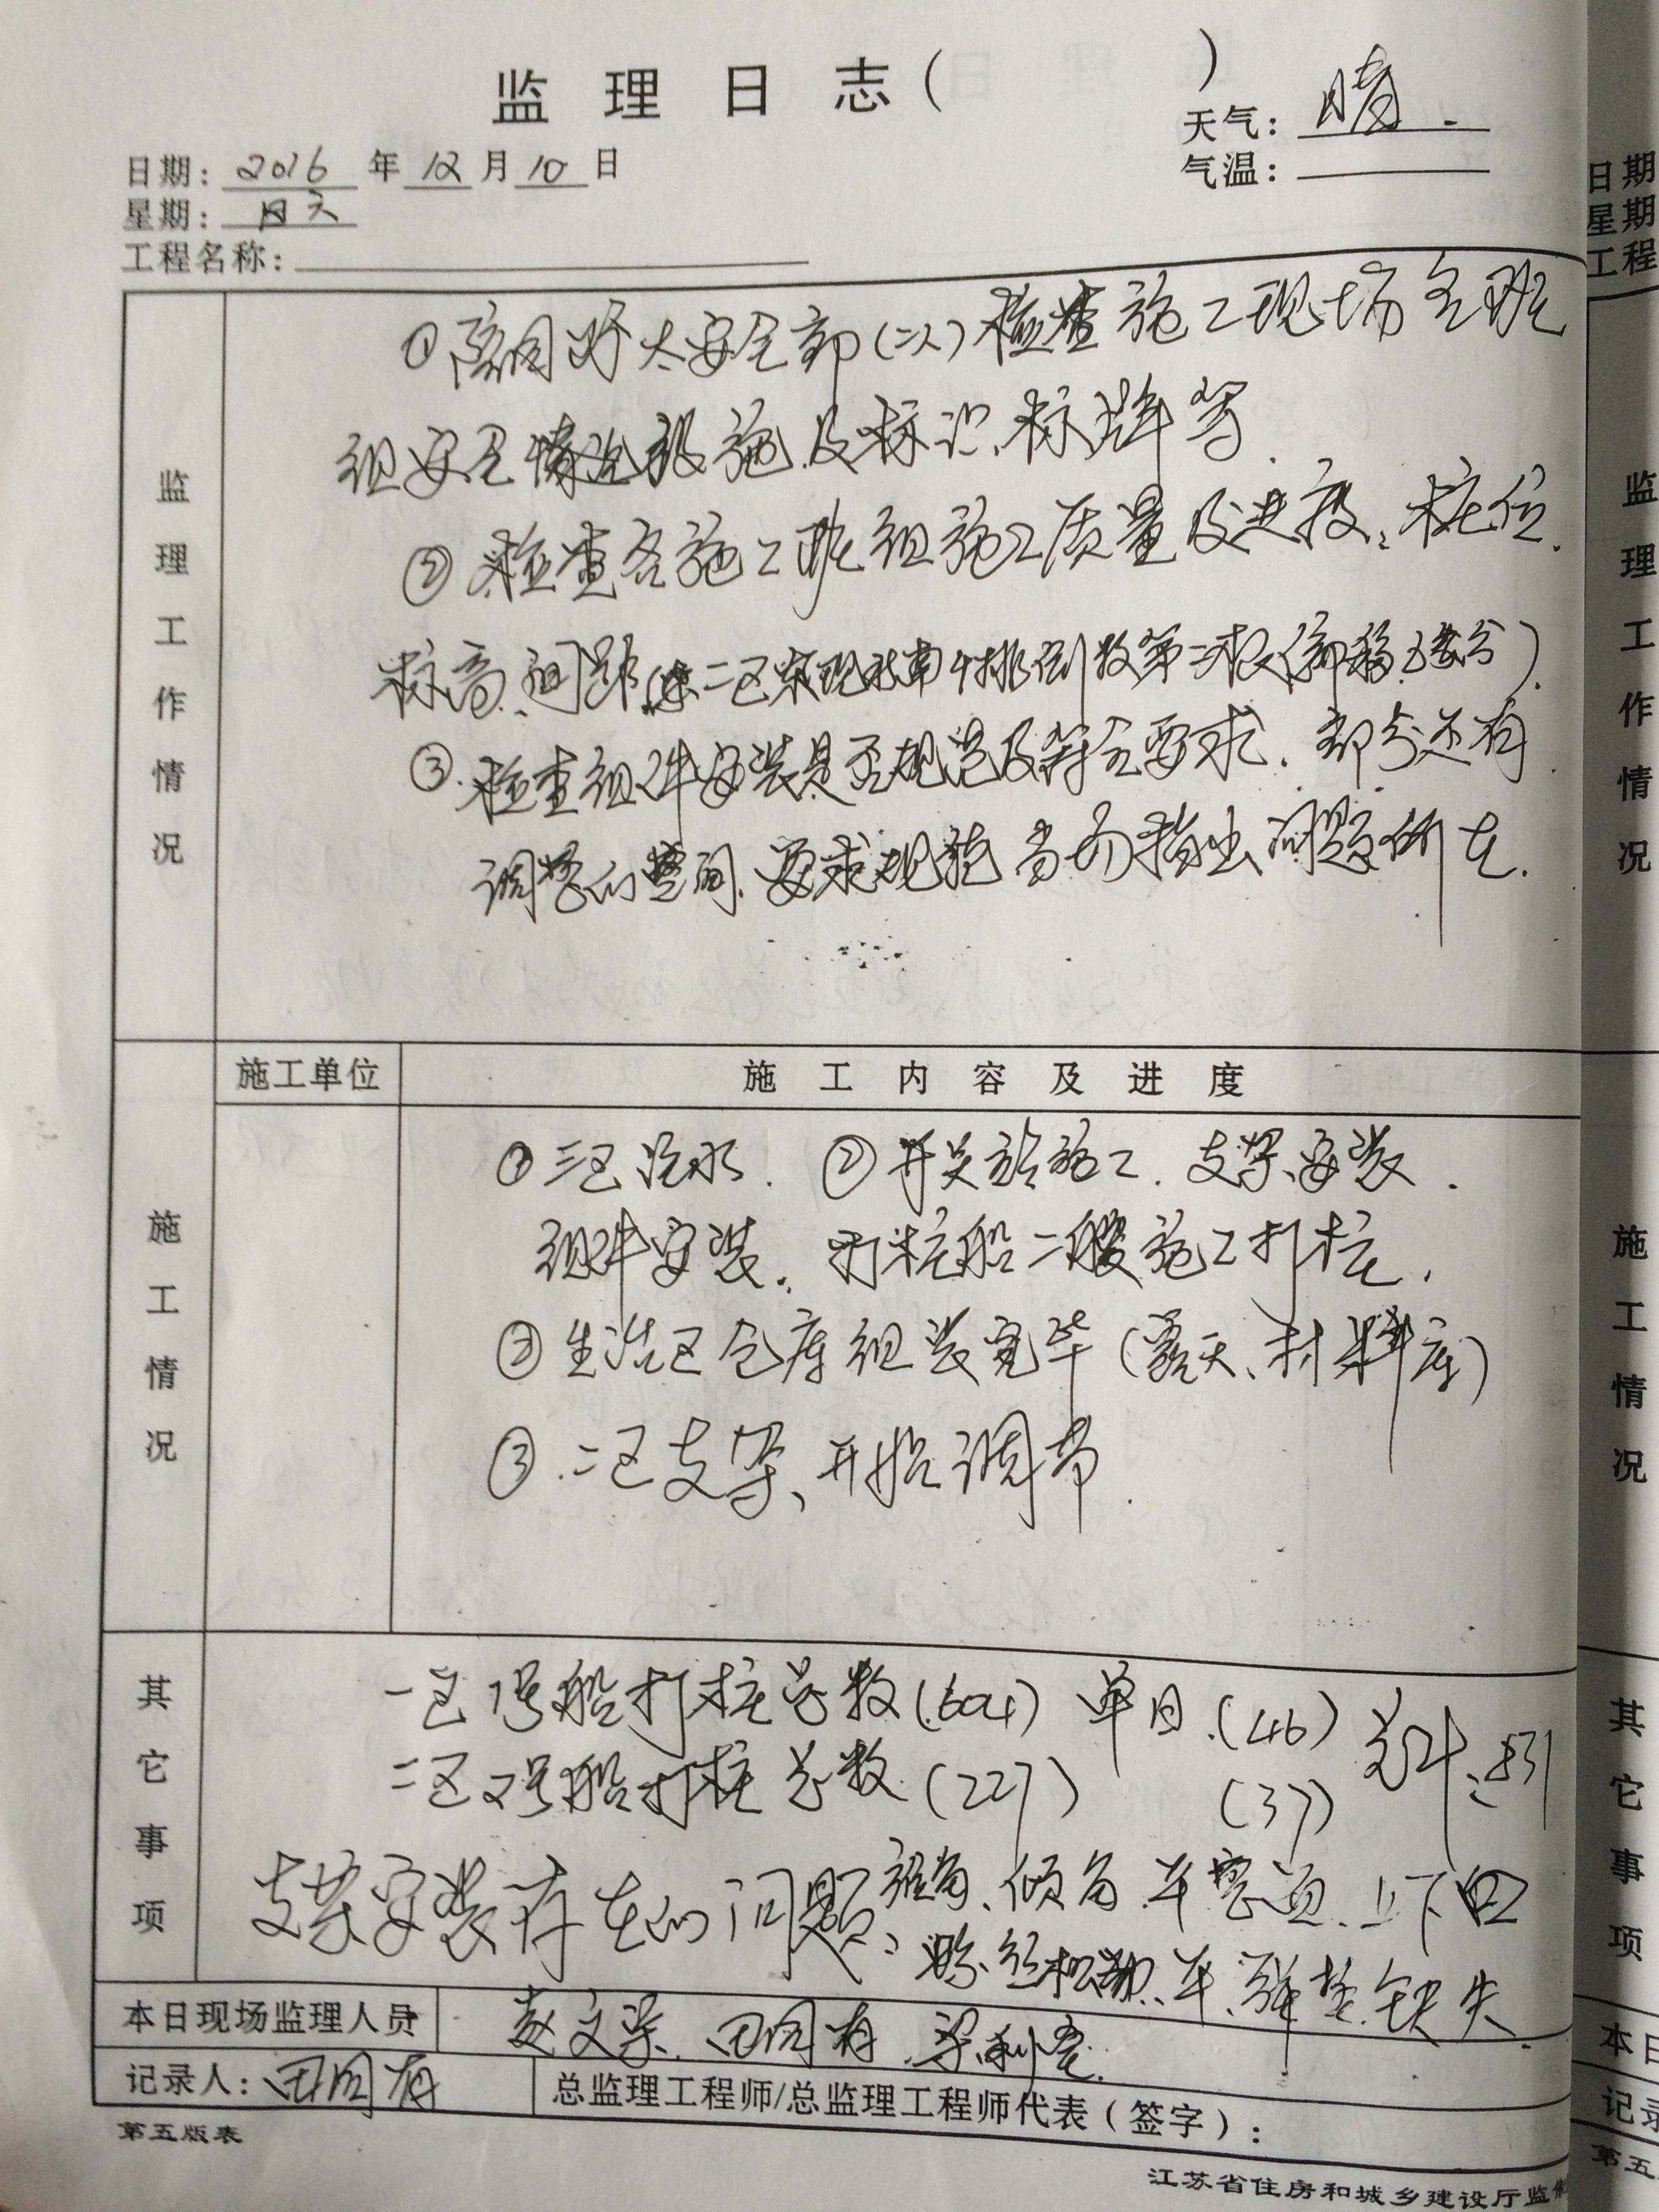 监理日志( )
天气: 晴.
日期: 2016 年 12 月 10 日
气温:
星期: 日天
工程名称:
监理工作情况
①陪同 太安全部(二人)检查施工现场各班
组安全情况设施及标识.标牌等.
②检查各施工班组施工质量及进度:桩位.
标高.间距.(二区发现北南4排倒数第二根偏移5公分).
③.检查组件安装是否规范及符合要求.部分还有
调整的空间.要求规范当场指出问题所在.
施工单位
施工内容及进度
施工情况
①三区抽水. ②开关站施工.支架安装.
组件安装.打桩船二艘施工打桩.
②生活区仓库组装完毕(露天、材料库)
③.二区支架、开始调节.
其它事项
一区1号船打桩总数(604) 单日.(46)
二区2号船打桩总数.(227) (37) 累计:831
支架安装存在的问题:
斜角、倾角.平整度.上下
螺丝松动、平、弹垫.缺失.
本日现场监理人员 赵文荣.田同有.梁利宽.
记录人: 田同有 总监理工程师/总监理工程师代表(签字):
第五版表
江苏省住房和城乡建设厅监制
日期
星期
工程
监理工作情况
施工情况
其它事项
本日
记录
第五